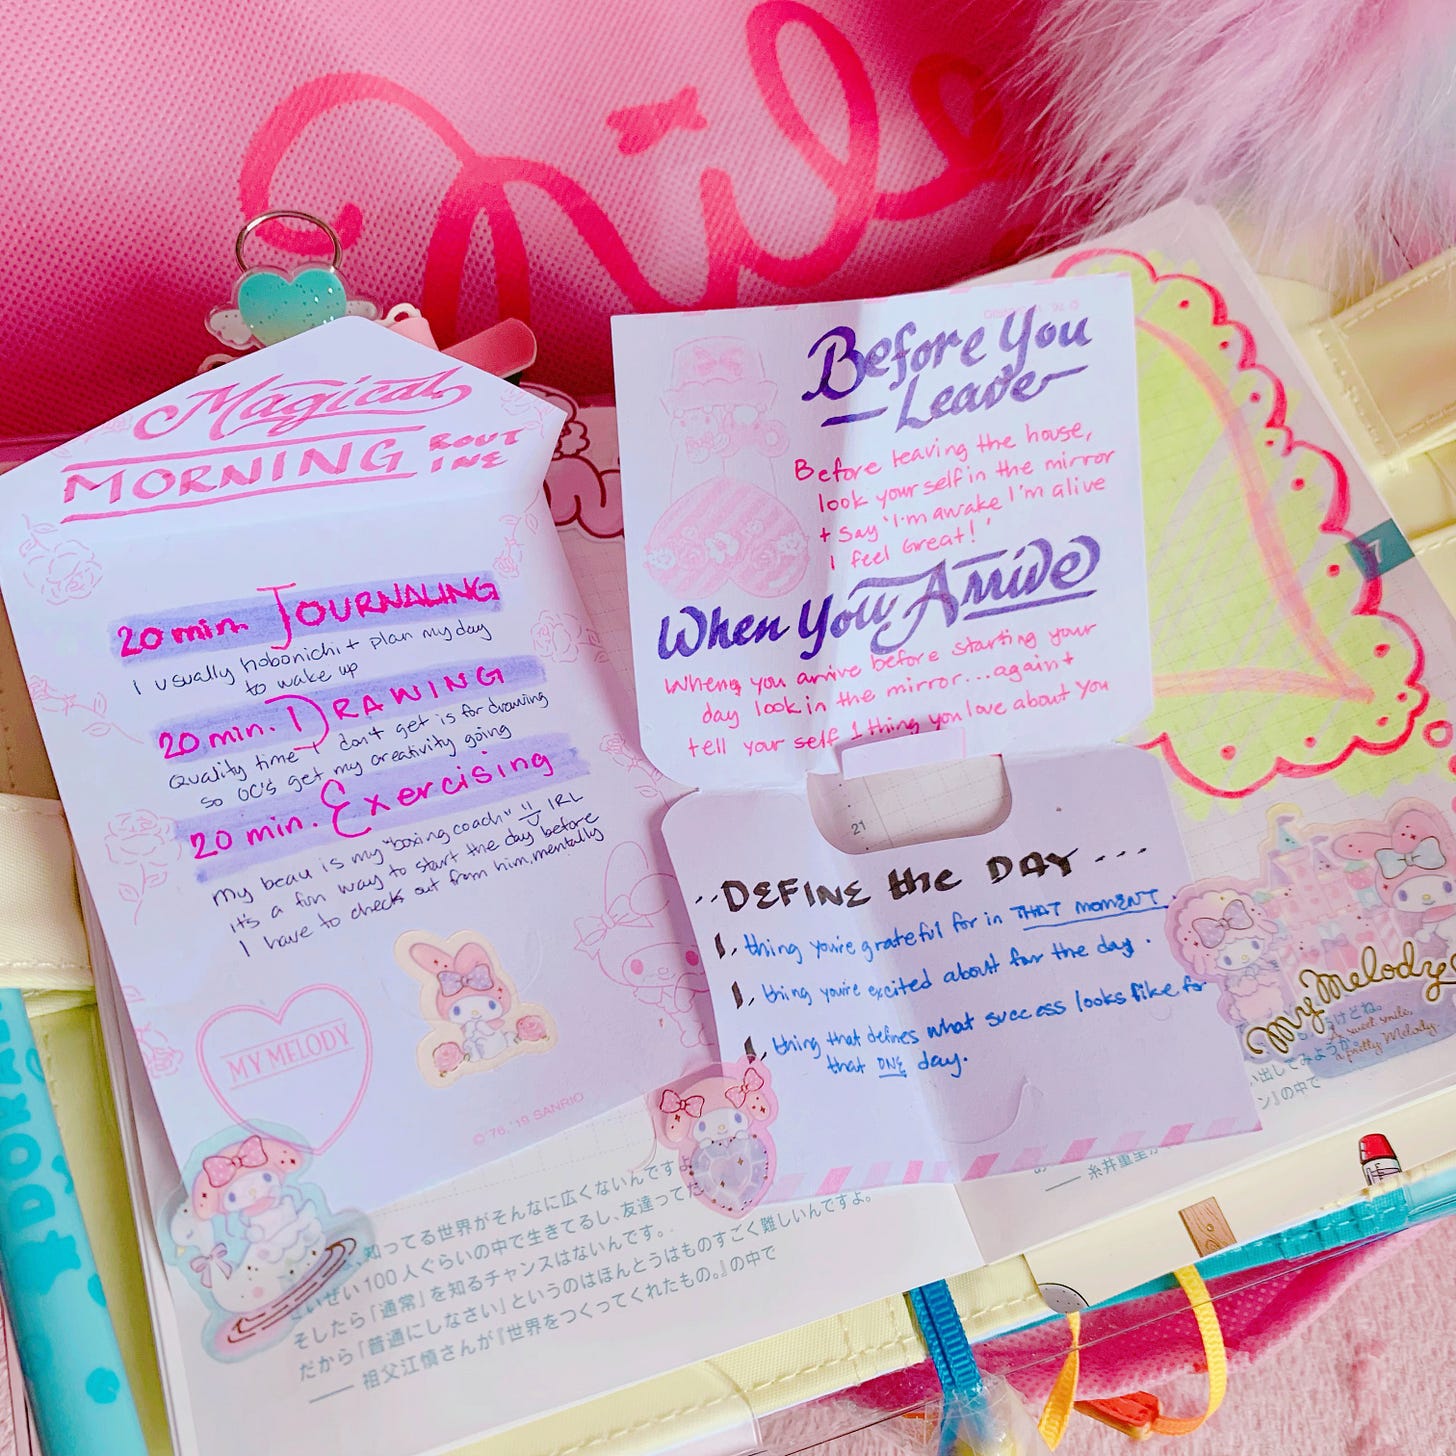 Magical
MORNING ROUT
INE
20 min. JOURNALING
I usually hobonichi + plan my day
to wake up
20 min. DRAWING
Quality time I don't get is for drawing
so OC's get my creativity going
20 min. Exercising
My beau is my "boxing coach" IRL
it's a fun way to start the day before
I have to checks out from him, mentally
MY MELODY
© '76, '19 SANRIO
Before You
Leave
Before leaving the house,
look your self in the mirror
+ Say 'I'm awake I'm alive
I feel Great!'
When You Arrive
When you arrive before starting your
day look in the mirror...again +
tell your self 1 thing you love about you
21
7
..DEFINE the DAY ...
1, thing you're grateful for in THAT MOMENT.
1, thing you're excited about for the day.
1, thing that defines what success looks like for
that ONE day.
My Melody
A sweet smile,
a pretty Melody.
けどね。
い出してみようか。
ン』の中で
—— 糸井重里が
知ってる世界がそんなに広くないんですよ
ぜい100人ぐらいの中で生きてるし、友達ってた
そしたら「通常」を知るチャンスはないんです。
だから「普通にしなさい」というのはほんとうはものすごく難しいんですよ。
—— 祖父江慎さんが『世界をつくってくれたもの。』の中で
DORA